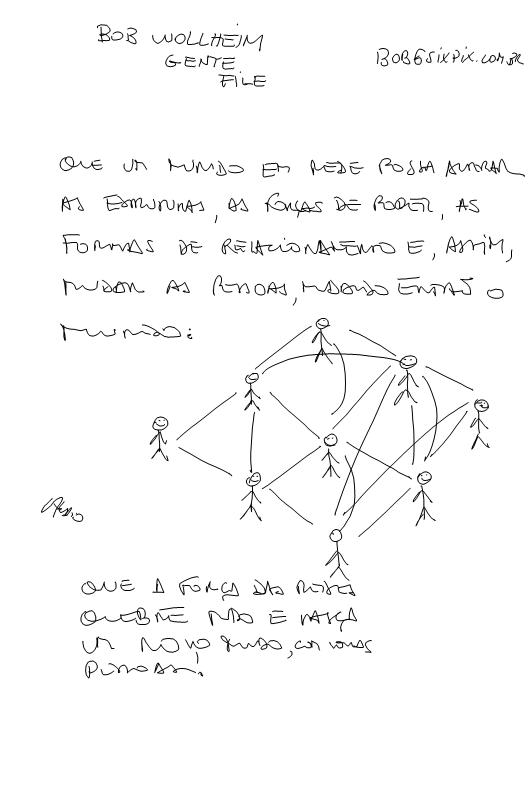 BOB WOLLHEIM
GENTE
FILE
BOB@SIXPIX.COM.BR
QUE UM MUNDO EM REDE POSSA ALTERAR
AS ESTRUTURAS, AS FORÇAS DE PODER, AS
FORMAS DE RELACIONAMENTO E, ASSIM,
MUDAR AS PESSOAS, MUDANDO ENTÃO O
MUNDO:
QUE A FORÇA DAS REDES
QUEBRE TUDO E NASÇA
UM NOVO MUNDO, COM NOVAS
PESSOAS!